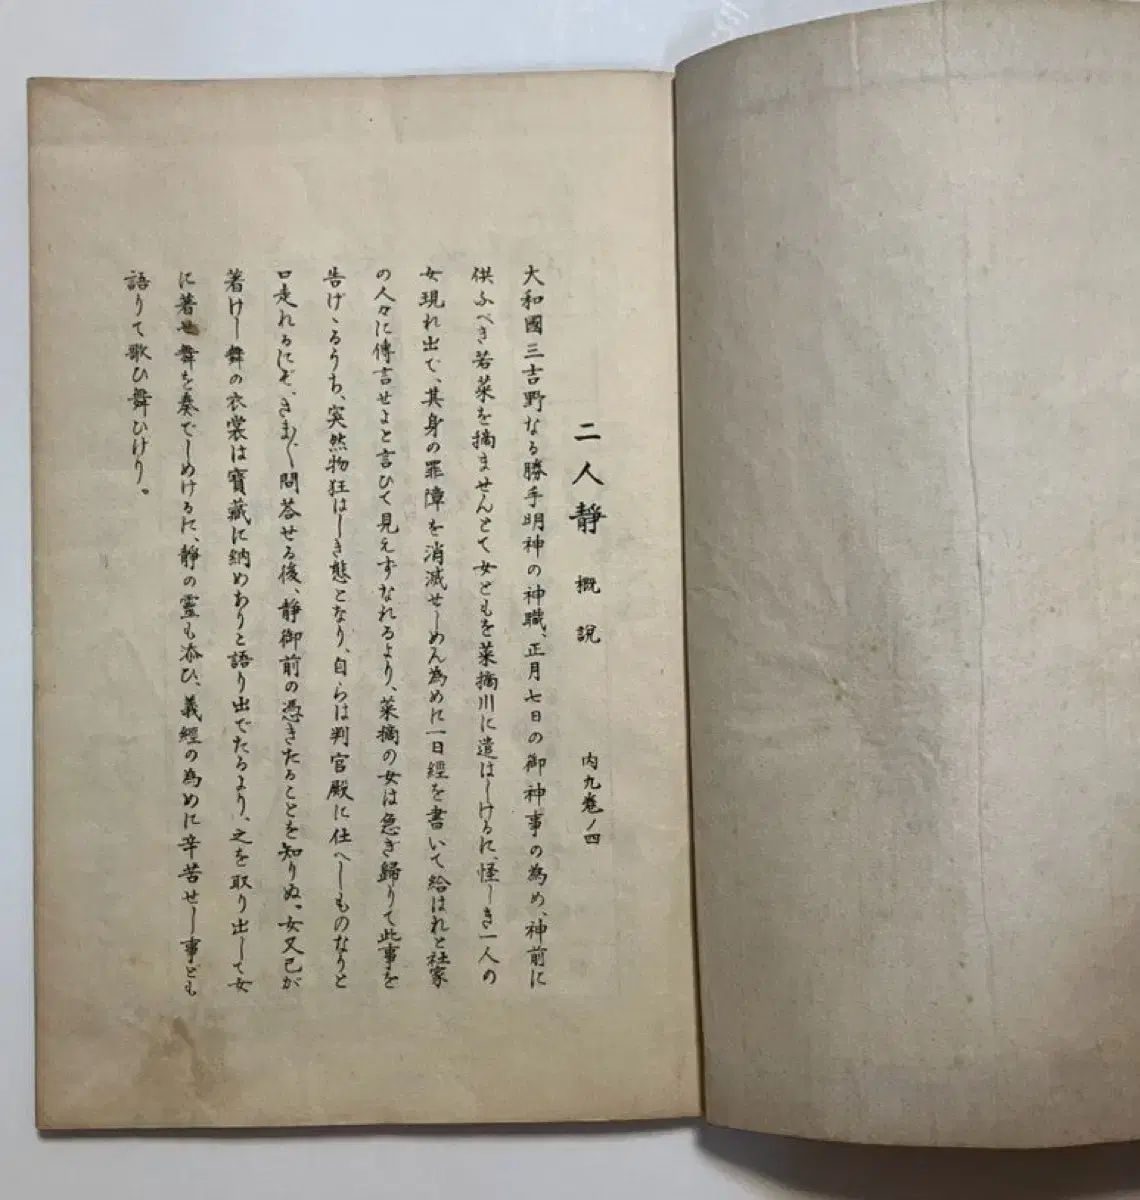 二人靜 概說 内九卷ノ四
大和國三吉野なる勝手明神の神職、正月七日の御神事の為め、神前に
供ふべき若菜を摘ませんとて女どもを菜摘川に遣はしけるに、怪しき一人の
女現れ出で、其身の罪障を消滅せしめん為めに一日經を書いて給はれと社家
の人々に傳言せよと言ひて見えずなれるより、菜摘の女は急ぎ歸りて此事を
告げゝるうち、突然物狂はしき態となり、自らは判官殿に仕へしものなりと
口走れるにぞ、さま〲問答せる後、靜御前の憑きたることを知りぬ。女又己が
著けし舞の衣裳は寶藏に納めありと語り出でたるより、之を取り出して女
に著せ舞を奏でしめけるに、靜の靈も添ひ、義經の為めに辛苦せし事ども
語りて歌ひ舞ひけり。